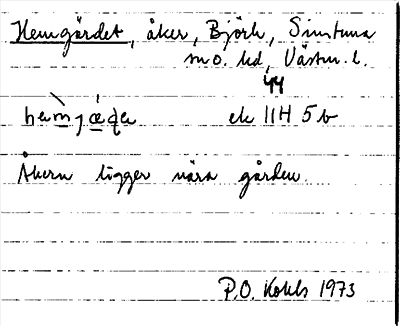 Hemgärdet, åker, Björk, Simtuna
sn o. hd, Västm. l.
44
ek 11H 5b
Åkern ligger nära gården.
P.O. Kohls 1973